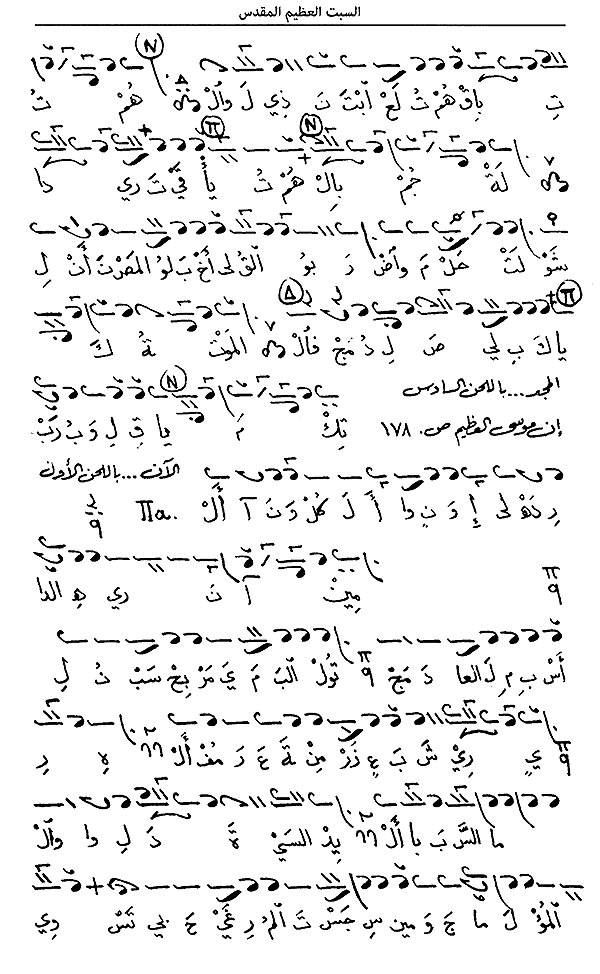 السبت العظيم المقدس
تِ باقْ هُمْ تُ لَعْ ابْتَ تَ ذي لَ وَالْ هُمْ تُ
لَةْ جُمْ بِالْ هُمْ تُ يأْ تَ ري دا
شَوْ لَتْ حَلْ مَ وأَضْ رَ بو القُ لى أَخْ بَ لَوُ أَنْ لِ
يا كَ بِ لي صَ لِ دُ مَجْ فَالْ المَوْتْ ةُ كَ
المجد... باللحن السادس
إن موسى العظيم ص. ١٧٨ تِكْ مَ يا قِ لِ وَ بُ رَبْ
الآن ... باللحن الأول
رِ دَهْ لى إِ وَ نِ وا أَ لَ كُلْ وَ نَ آ أَلْ Πa.
مِينْ آ نَ ري هِ الدا
أَسْ بِ مِ لَ العا دَ مَجْ تُولْ البَ مَ يَ مَرْ بِحْ سَبْ نُ لِ
يِ رِيْ شَ بَ عِ ذَرْ مِنْ ةَ عَ رَ مُفْ أَلْ هِ رِ
ما السَّ بَ با أَلْ يِدْ السَيْ ةَ دَ لِ وا وَالْ
المُؤْ لَ ما جَ وَ مين سِ جَسْ تَ المُ رِ غَيْ حَ بي تَسْ دي